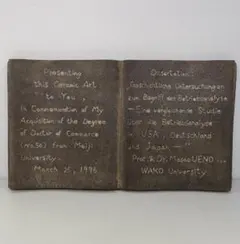 Presenting
this Ceramic Art
to You,
in Commemoration of My
Acquisition of the Degree
of Doctor of Commerce
from Meiji
University.
March 25, 1996
Dissertation:
Untersuchungen
zum Begriff der Betriebsanalyse
—Eine vergleichende Studie
über die Betriebsanalyse
in USA, Deutschland
und Japan—
Prof. Dr. UENO
WAKO University